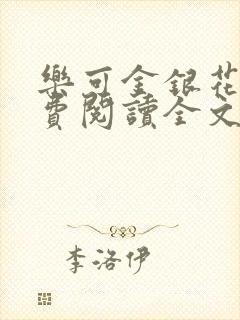 樂可金銀花
費閱讀全文
李洛伊